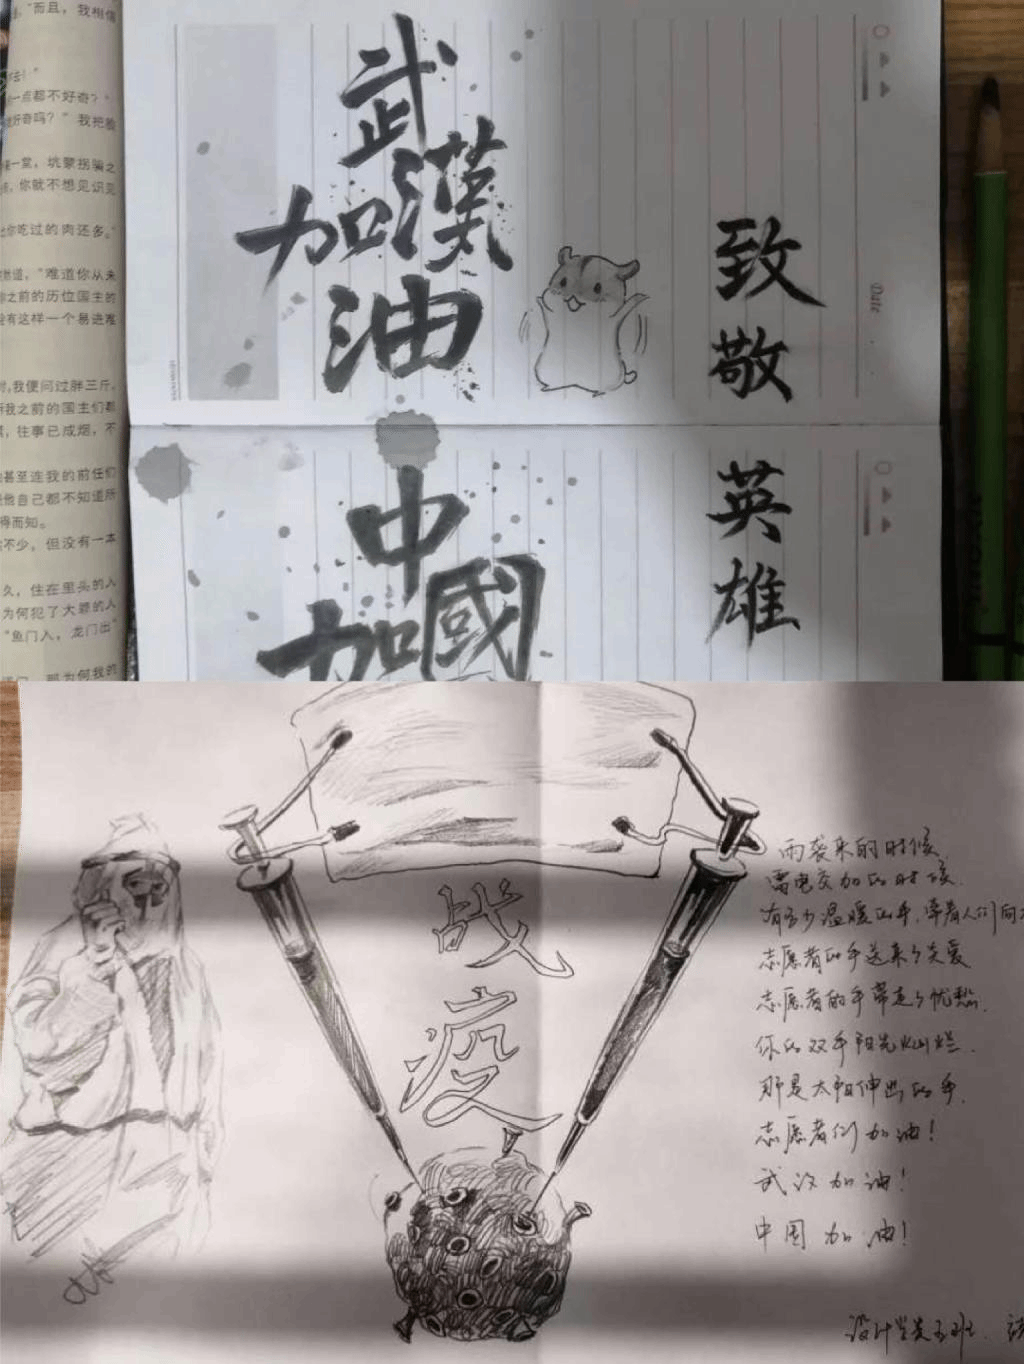 "而且，我相信
去！"
一点都不好奇？"
好奇吗？" 我把脸
一堂，坑蒙拐骗之
，你就不想见识见
比你吃过的肉还多。"
地道，"难道你从未
之前的历位国主的
没有这样一个易进难
时，我便问过胖三斤，
我之前的国主们都
，往事已成烟，不
甚至连我的前任们
他自己都不知道所
得而知。
不少，但没有一本
久，住在里头的人
为何犯了大罪的人
"鱼门入，龙门出"
那为何我的
武漢
加油
中國
加
Date
致敬
英雄
战疫
雨袭来的时候
雷电交加的时候
有多少温暖的手，牵着人们向
志愿者的手送来了关爱
志愿者的手带走了忧愁
你的双手阳光灿烂
那是太阳伸出的手
志愿者们加油！
武汉加油！
中国加油！
设计学类五班